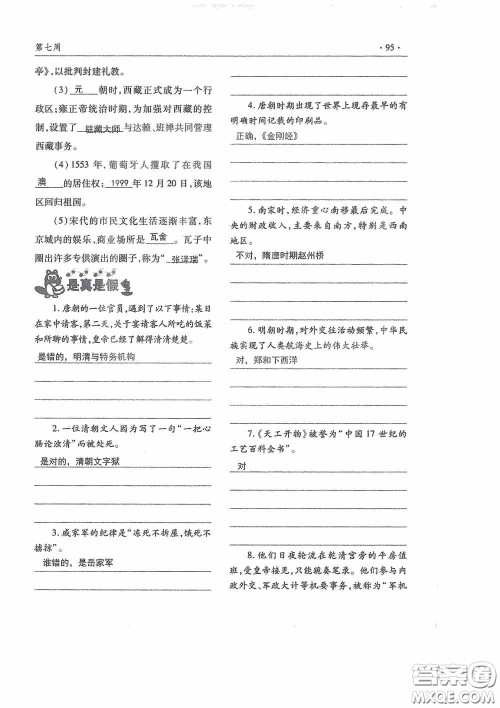 第七周
·95·
亭》,以批判封建礼教。
(3) 元 朝时,西藏正式成为一个行
政区;雍正帝统治时期,为加强对西藏的控
制,设置了 驻藏大师 与达赖、班禅共同管理
西藏事务。
(4) 1553年,葡萄牙人攫取了在我国
澳 的居住权;1999年12月20日,该地
区回归祖国。
(5)宋代的市民文化生活逐渐丰富,东
京城内的娱乐、商业场所是 瓦舍 。瓦子中
圈出许多专供演出的圈子,称为“ 张泽瑞 ”。
是真是假
1.唐朝的一位官员,遇到了以下事情:某日
在家中请客,第二天,关于宴请客人所吃的饭菜
和所聊的事情,皇帝已经了解得清清楚楚。
是错的,明清与特务机构
2.一位清朝文人因为写了一句“一把心
肠论浊清”而被处死。
是对的,清朝文字狱
3.戚家军的纪律是“冻死不拆屋,饿死不
掳掠”。
谁错的,是岳家军
4.唐朝时期出现了世界上现存最早的有
明确时间记载的印刷品。
正确,《金刚经》
5.南宋时,经济重心南移最后完成。中
央的财政收入,主要来自南方,特别是西南
地区。
不对,隋澄时期赵州桥
6.明朝时期,对外交往活动频繁,中华民
族实现了人类航海史上的伟大壮举。
对,郑和下西洋
7.《天工开物》被誉为“中国17世纪的
工艺百科全书”。
对
8.他们日夜轮流在乾清宫旁的平房值
班,受皇帝接见,只能跪奏笔录。他们参与
内政外交、军政大计等机要事务,被称为“军机
答案圈
MXQE.COM